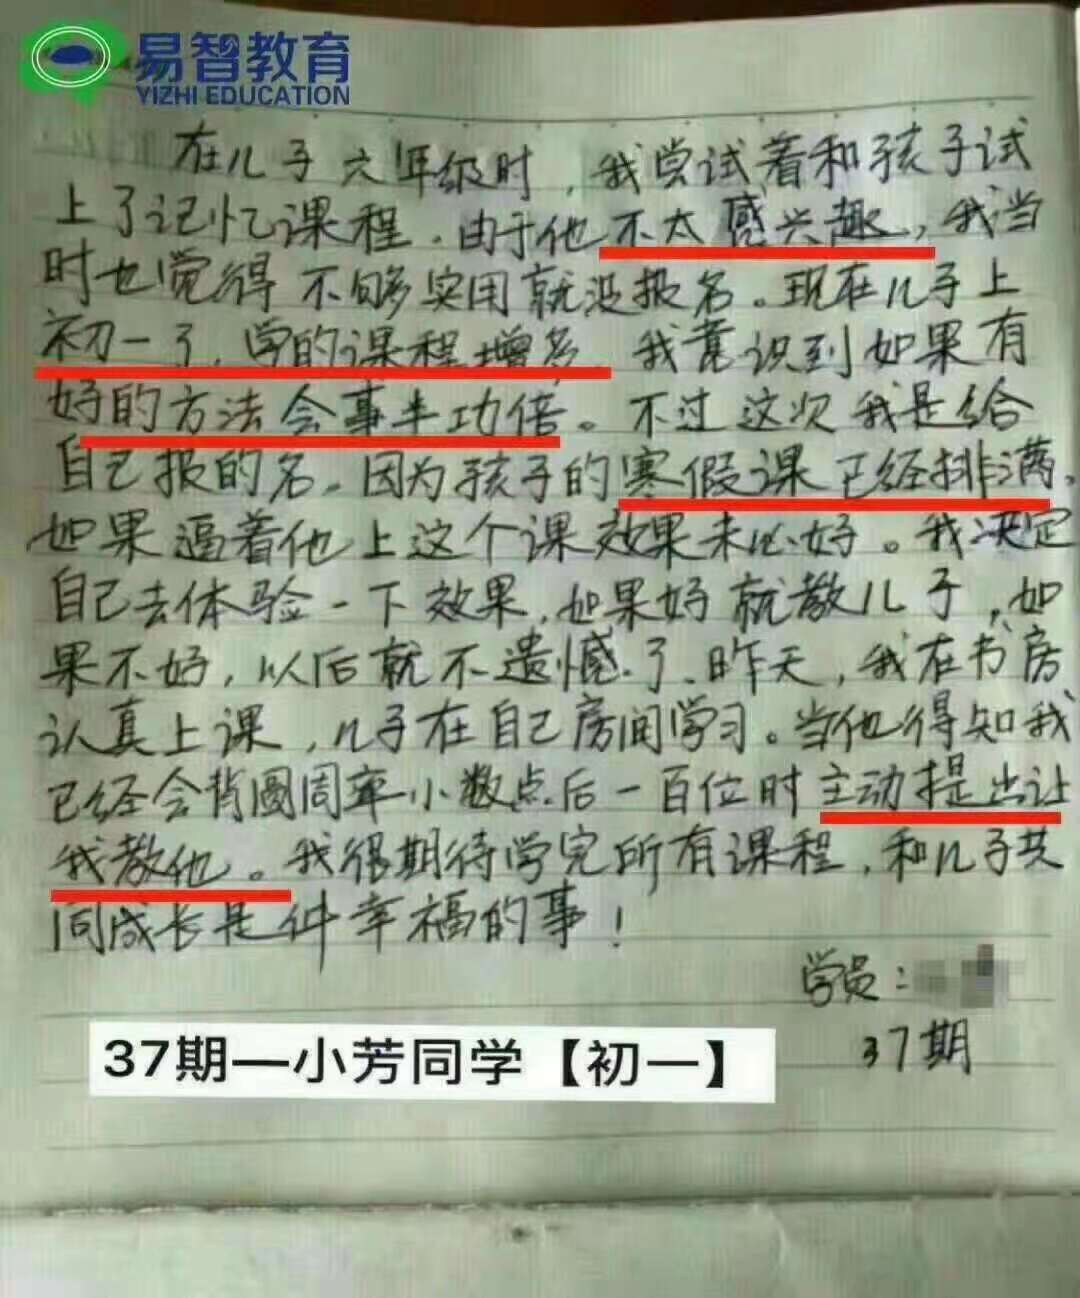 易智教育
YIZHI EDUCATION
在儿子六年级时，我尝试着和孩子试
上了记忆课程。由于他不太感兴趣，我当
时也觉得不够实用就没报名。现在儿子上
初一了，学的课程增多，我意识到如果有
好的方法会事半功倍。不过这次我是给
自己报的名。因为孩子的寒假课已经排满，
如果逼着他上这个课效果未必好。我决定
自己去体验一下效果，如果好就教儿子，如
果不好，以后就不遗憾了。昨天，我在书房
认真上课，儿子在自己房间学习。当他得知我
已经会背圆周率小数点后一百位时主动提出让
我教他。我很期待学完所有课程，和儿子共
同成长是件幸福的事！
学员：
37期
37期—小芳同学【初一】